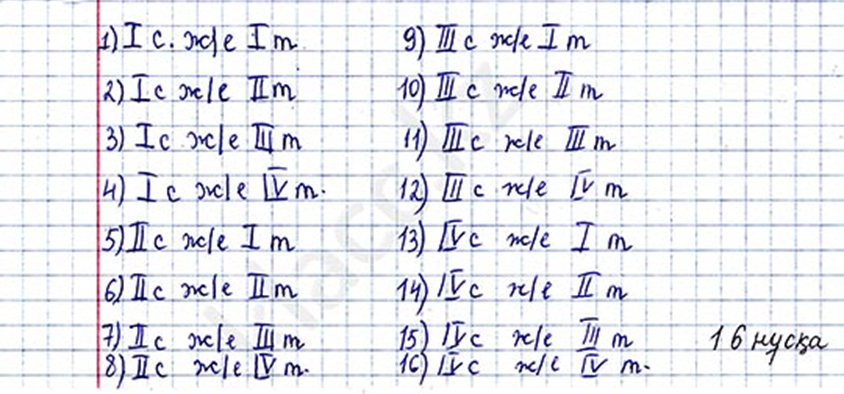 1) I с. ж/е I т
2) I с ж/е II т
3) I с ж/е III т
4) I с ж/е IV т.
5) II с ж/е I т
6) II с ж/е II т
7) II с ж/е III т
8) II с ж/е IV т.
9) III с ж/е I т
10) III с ж/е II т
11) III с ж/е III т
12) III с ж/е IV т
13) IV с ж/е I т
14) IV с ж/е II т
15) IV с ж/е III т
16) IV с ж/е IV т.
16 нұсқа